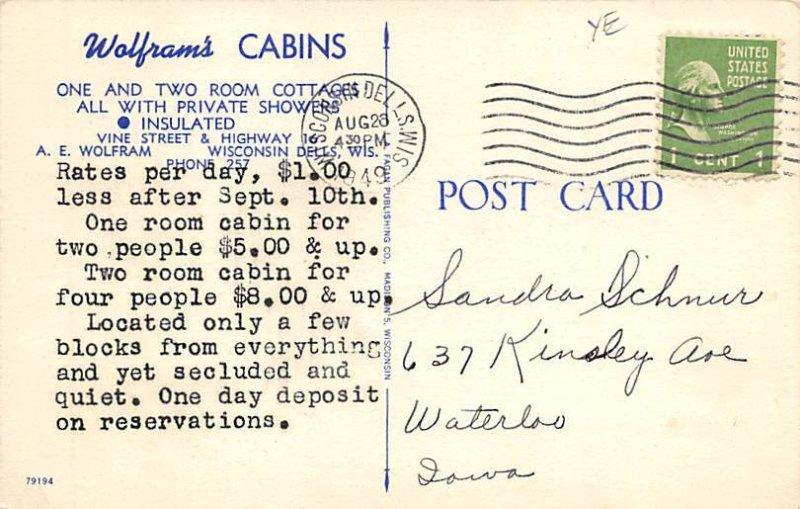 Wolfram's CABINS
ONE AND TWO ROOM COTTAGES
ALL WITH PRIVATE SHOWERS
● INSULATED
VINE STREET & HIGHWAY 16
A. E. WOLFRAM WISCONSIN DELLS, WIS.
PHONE 257
Rates per day, $1.00
less after Sept. 10th.
One room cabin for
two people $5.00 & up.
Two room cabin for
four people $8.00 & up.
Located only a few
blocks from everything
and yet secluded and
quiet. One day deposit
on reservations.
79194
FAGIN PUBLISHING CO., MADISON 5, WISCONSIN
YE
WISCONSIN DELLS, WIS.
AUG 28
4 30 PM
1949
UNITED
STATES
POSTAGE
GEORGE
WASHINGTON
1 CENT 1
POST CARD
Sandra Schnur
637 Kinsley Ave
Waterloo
Iowa